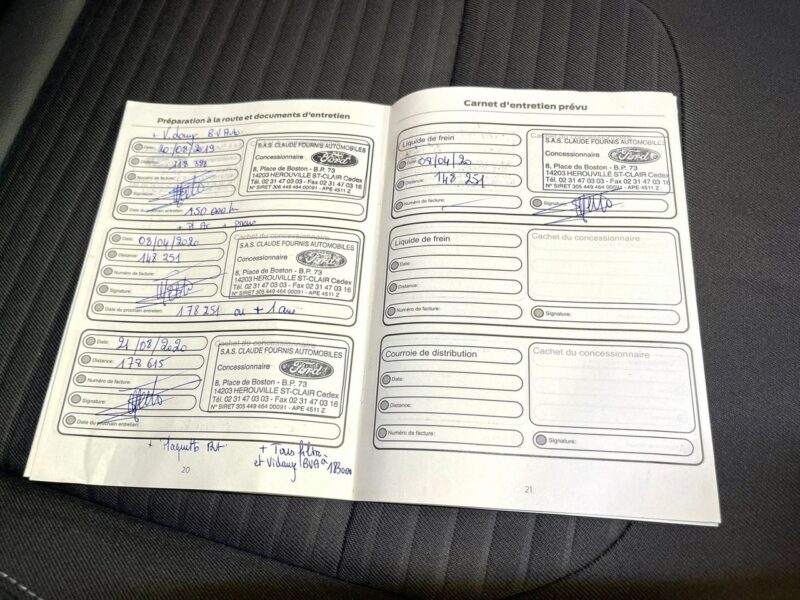 Préparation à la route et documents d'entretien
+ Vidange BVAuto
Date: 20/08/2019
Distance: 118 388
Numéro de facture:
Signature:
Date du prochain entretien: 150 000 k
S.A.S. CLAUDE FOURNIS AUTOMOBILES
Concessionnaire Ford
8, Place de Boston - B.P. 73
14203 HEROUVILLE ST-CLAIR Cedex
Tél. 02 31 47 03 03 - Fax 02 31 47 03 16
N° SIRET 305 449 464 00091 - APE 4511 Z
Date: 08/04/2020
Distance: 148 251
Numéro de facture:
Signature:
Date du prochain entretien: 178 251 ou + 1 an
Cachet du concessionnaire
S.A.S. CLAUDE FOURNIS AUTOMOBILES
Concessionnaire Ford
8, Place de Boston - B.P. 73
14203 HEROUVILLE ST-CLAIR Cedex
Tél. 02 31 47 03 03 - Fax 02 31 47 03 16
N° SIRET 305 449 464 00091 - APE 4511 Z
Date: 21/08/2020
Distance: 178 615
Numéro de facture:
Signature:
Date du prochain entretien:
Cachet du concessionnaire
S.A.S. CLAUDE FOURNIS AUTOMOBILES
Concessionnaire Ford
8, Place de Boston - B.P. 73
14203 HEROUVILLE ST-CLAIR Cedex
Tél. 02 31 47 03 03 - Fax 02 31 47 03 16
N° SIRET 305 449 464 00091 - APE 4511 Z
+ Plaquette
+ Tous filtres
et Vidange BVA à
20
Carnet d'entretien prévu
Liquide de frein
Date: 08/04/20
Distance: 148 251
Numéro de facture:
S.A.S. CLAUDE FOURNIS AUTOMOBILES
Concessionnaire Ford
8, Place de Boston - B.P. 73
14203 HEROUVILLE ST-CLAIR Cedex
Tél. 02 31 47 03 03 - Fax 02 31 47 03 16
N° SIRET 305 449 464 00091 - APE 4511 Z
Signature:
Liquide de frein
Date:
Distance:
Numéro de facture:
Cachet du concessionnaire
Signature:
Courroie de distribution
Date:
Distance:
Numéro de facture:
Cachet du concessionnaire
Signature:
21